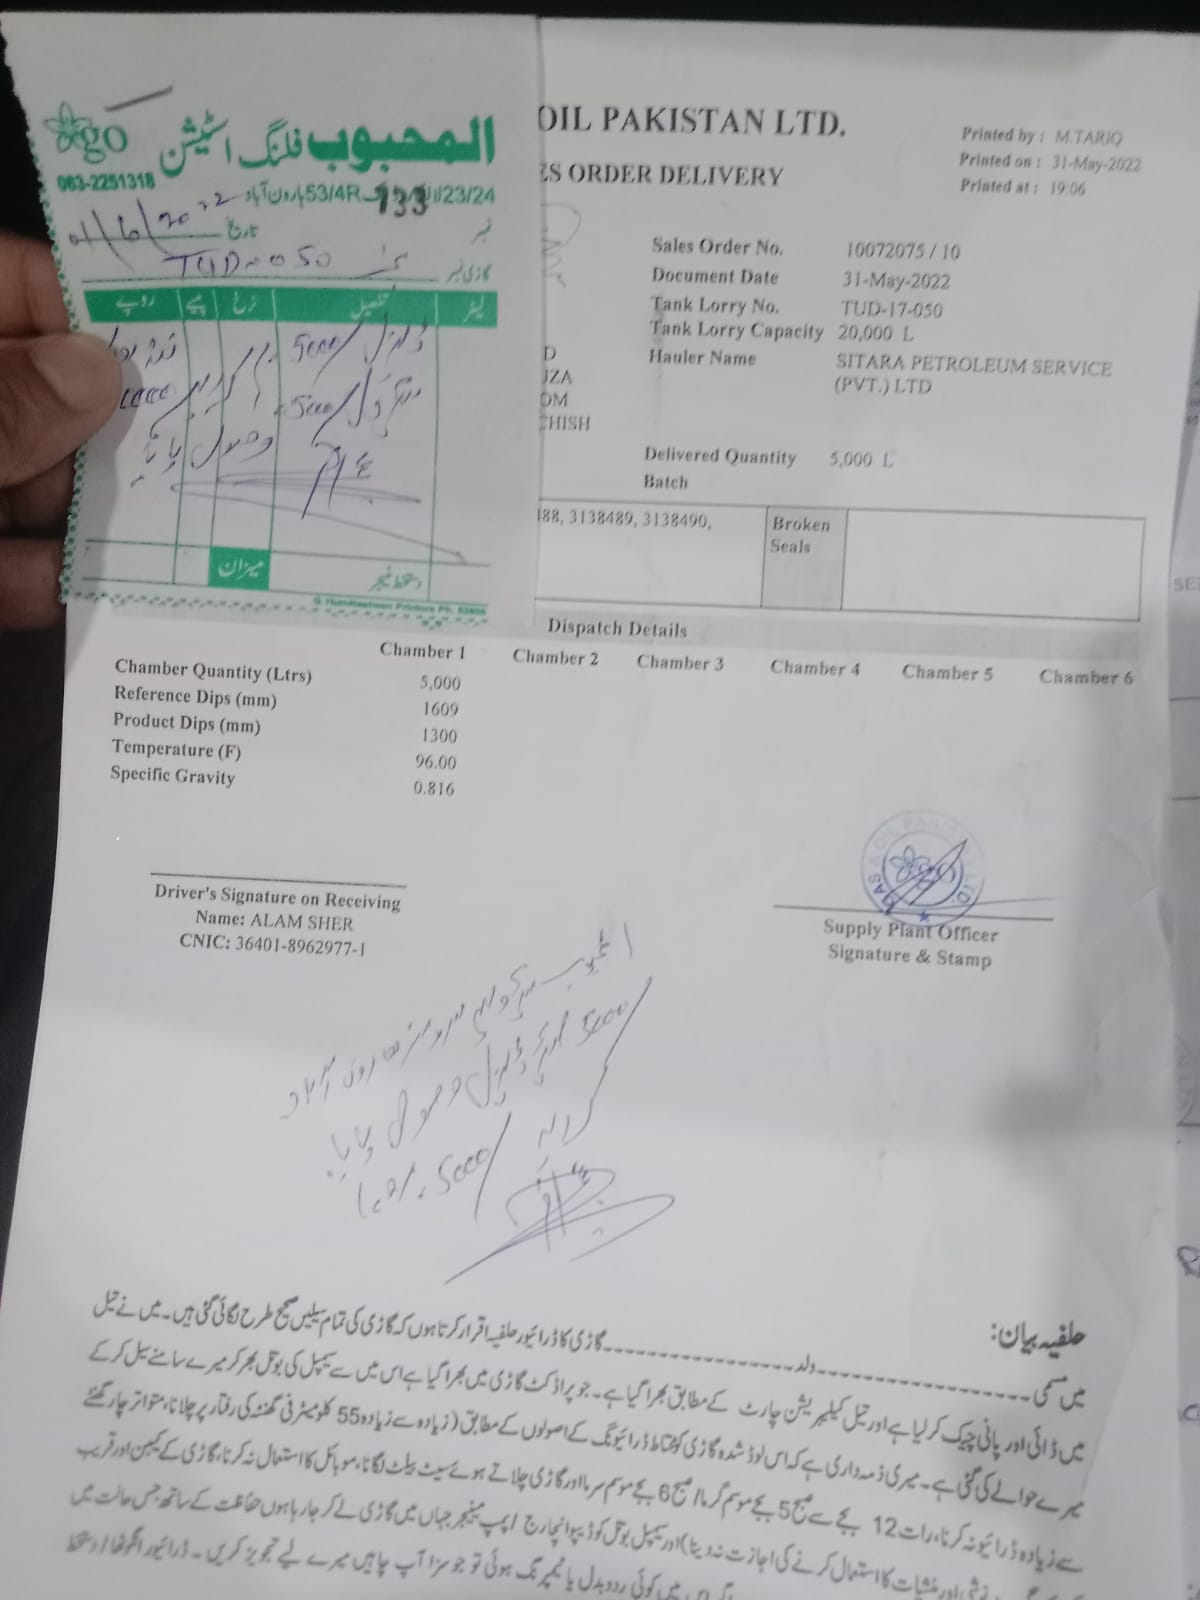 go
المحبوب فلنگ اسٹیشن
063-2251318
23/24
53/4R
ہارون آباد
133
نمبر
تاریخ 01/6/2022
گاڑی نمبر TUD-050
لیٹر تفصیل نرخ پیسے روپے
ڈیزل 5000/
5000/
وصول پایا
میزان
دستخط منیجر
OIL PAKISTAN LTD.
ES ORDER DELIVERY
Printed by : M.TARIQ
Printed on : 31-May-2022
Printed at : 19:06
Sales Order No. 10072075 / 10
Document Date 31-May-2022
Tank Lorry No. TUD-17-050
Tank Lorry Capacity 20,000 L
Hauler Name SITARA PETROLEUM SERVICE (PVT.) LTD
D
UZA
OM
CHISH
Delivered Quantity 5,000 L
Batch
488, 3138489, 3138490,
Broken Seals
Dispatch Details
Chamber 1 Chamber 2 Chamber 3 Chamber 4 Chamber 5 Chamber 6
Chamber Quantity (Ltrs) 5,000
Reference Dips (mm) 1609
Product Dips (mm) 1300
Temperature (F) 96.00
Specific Gravity 0.816
Driver's Signature on Receiving
Name: ALAM SHER
CNIC: 36401-8962977-1
GAS & OIL PAKISTAN LTD.
go
Supply Plant Officer
Signature & Stamp
المحبوب پٹرولیم سروسز ھارون آباد
5000 لیٹر ڈیزل وصول پایا
کرایہ 5000/
حلفیہ بیان:
میں مسمی ------ ولد ------ گاڑی کا ڈرائیور حلفیہ اقرار کرتا ہوں کہ گاڑی کی تمام سیلیں صحیح طرح لگائی گئی ہیں۔ میں نے تیل
میں ڈائی اور پانی چیک کر لیا ہے اور تیل کیلبریشن چارٹ کے مطابق بھرا گیا ہے۔ جو پراڈکٹ گاڑی میں بھرا گیا ہے اس میں سے سیمپل کی بوتل بھر کر میرے سامنے سیل کر کے
میرے حوالے کی گئی ہے۔ میری ذمہ داری ہے کہ اس لوڈ شدہ گاڑی کو محتاط ڈرائیونگ کے اصولوں کے مطابق (زیادہ سے زیادہ 55 کلومیٹر فی گھنٹہ کی رفتار پر چلانا، متواتر چار گھنٹے
سے زیادہ ڈرائیو نہ کرنا، رات 12 بجے سے صبح 5 بجے موسم گرما / صبح 6 بجے موسم سرما اور گاڑی چلاتے ہوئے سیٹ بیلٹ لگانا، موبائل کا استعمال نہ کرنا، گاڑی کے کیبن اور قریب
نوشی اور منشیات کا استعمال کرنے کی اجازت نہ دینا) اور سیمپل بوتل کو ڈیپو انچارج / پمپ مینیجر جہاں میں گاڑی لے کر جا رہا ہوں حفاظت کے ساتھ جس حالت میں
اس میں کوئی ردوبدل یا ٹیمپرنگ ہوئی تو جو سزا آپ چاہیں میرے لیے تجویز کریں۔ ڈرائیور انگوٹھا / دستخط